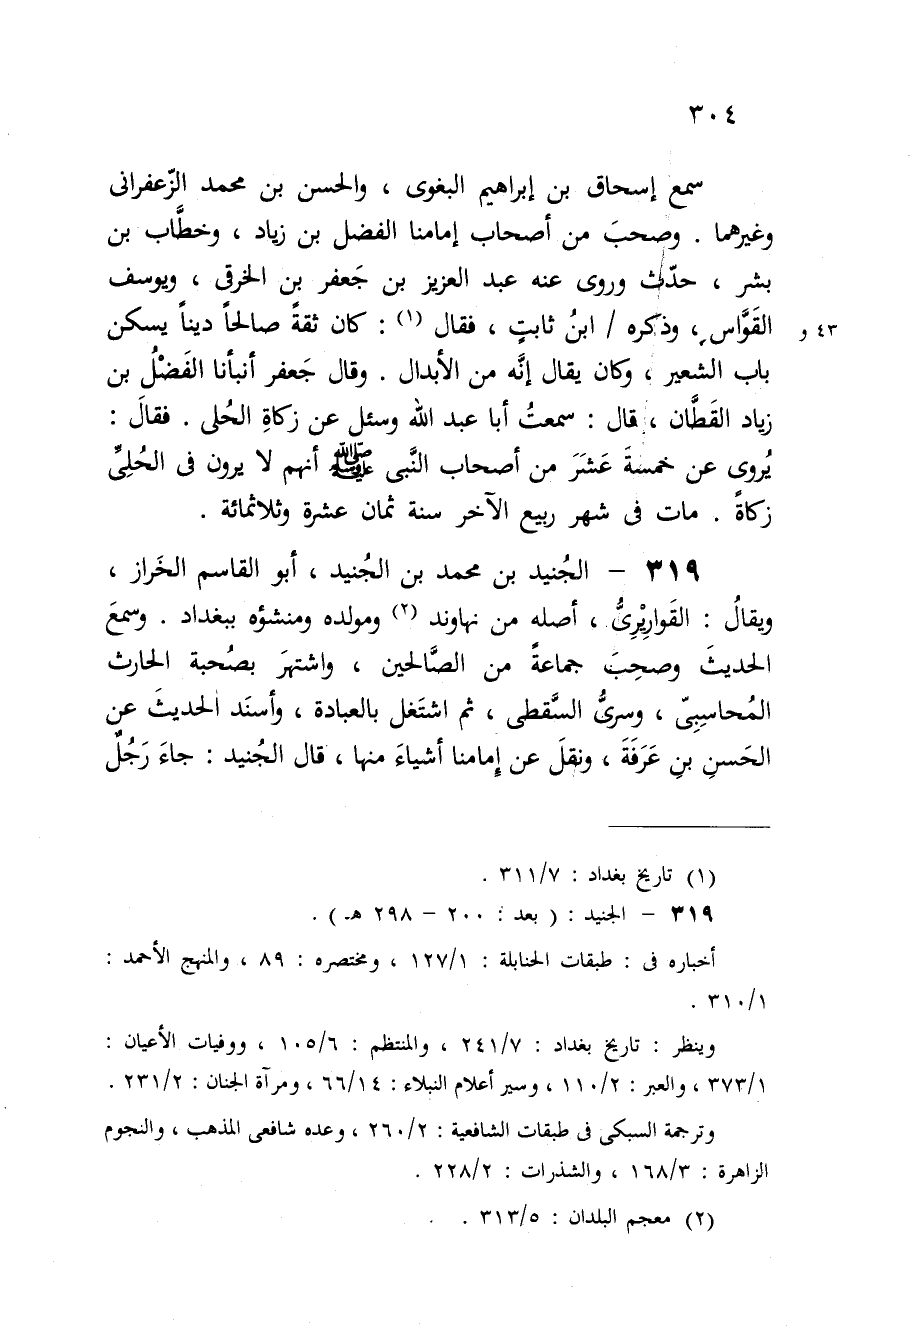 ٣٠٤
سمع إسحاق بن إبراهيم البغوى ، والحسن بن محمد الزّعفرانى
وغيرهما . وصحبَ من أصحاب إمامنا الفضل بن زياد ، وخطَّاب بن
بشر ، حدّث وروى عنه عبد العزيز بن جَعفر بن الخرقى ، ويوسف
القَوَّاس ، وذكره / ابنُ ثابتٍ ، فقال (١) : كان ثقةً صالحاً ديناً يسكن ٤٣ و
باب الشعير ، وكان يقال إنَّه من الأبدال . وقال جَعفر أنبأنا الفَضْلُ بن
زياد القَطَّان ، قال : سمعتُ أبا عبد الله وسئل عن زكاةِ الحُلى . فقالَ :
يُروى عن خمسةَ عَشَرَ من أصحاب النَّبى ﷺ أنهم لا يرون فى الحُلِىِّ
زكاةً . مات فى شهر ربيع الآخر سنة ثمان عشرة وثلاثمائة .
٣١٩ – الجُنيد بن محمد بن الجُنيد ، أبو القاسم الخَراز ،
ويقالُ : القَواريْرِىُّ ، أصله من نهاوند (٢) ومولده ومنشؤه ببغداد . وسمعَ
الحديثَ وصحِبَ جماعةً من الصَّالحين ، واشتهرَ بصُحبة الحارث
المُحاسِبِىّ ، وسرىُّ السَّقطى ، ثم اشتَغل بالعبادة ، وأسنَد الحديثَ عن
الحَسنِ بنِ عَرَفَةَ ، ونقلَ عن إمامنا أشياءَ منها ، قال الجُنيد : جاءَ رَجُلٌ
(١) تاريخ بغداد : ٣١١/٧ .
٣١٩ – الجنيد : ( بعد : ٢٠٠ – ٢٩٨ هـ ) .
أخباره فى : طبقات الحنابلة : ١٢٧/١ ، ومختصره : ٨٩ ، والمنهج الأحمد :
٣١٠/١ .
وينظر : تاريخ بغداد : ٢٤١/٧ ، والمنتظم : ١٠٥/٦ ، ووفيات الأعيان :
٣٧٣/١ ، والعبر : ١١٠/٢ ، وسير أعلام النبلاء : ٦٦/١٤ ، ومرآة الجنان : ٢٣١/٢ .
وترجمة السبكى فى طبقات الشافعية : ٢٦٠/٢ ، وعده شافعى المذهب ، والنجوم
الزاهرة : ١٦٨/٣ ، والشذرات : ٢٢٨/٢ .
(٢) معجم البلدان : ٣١٣/٥ .